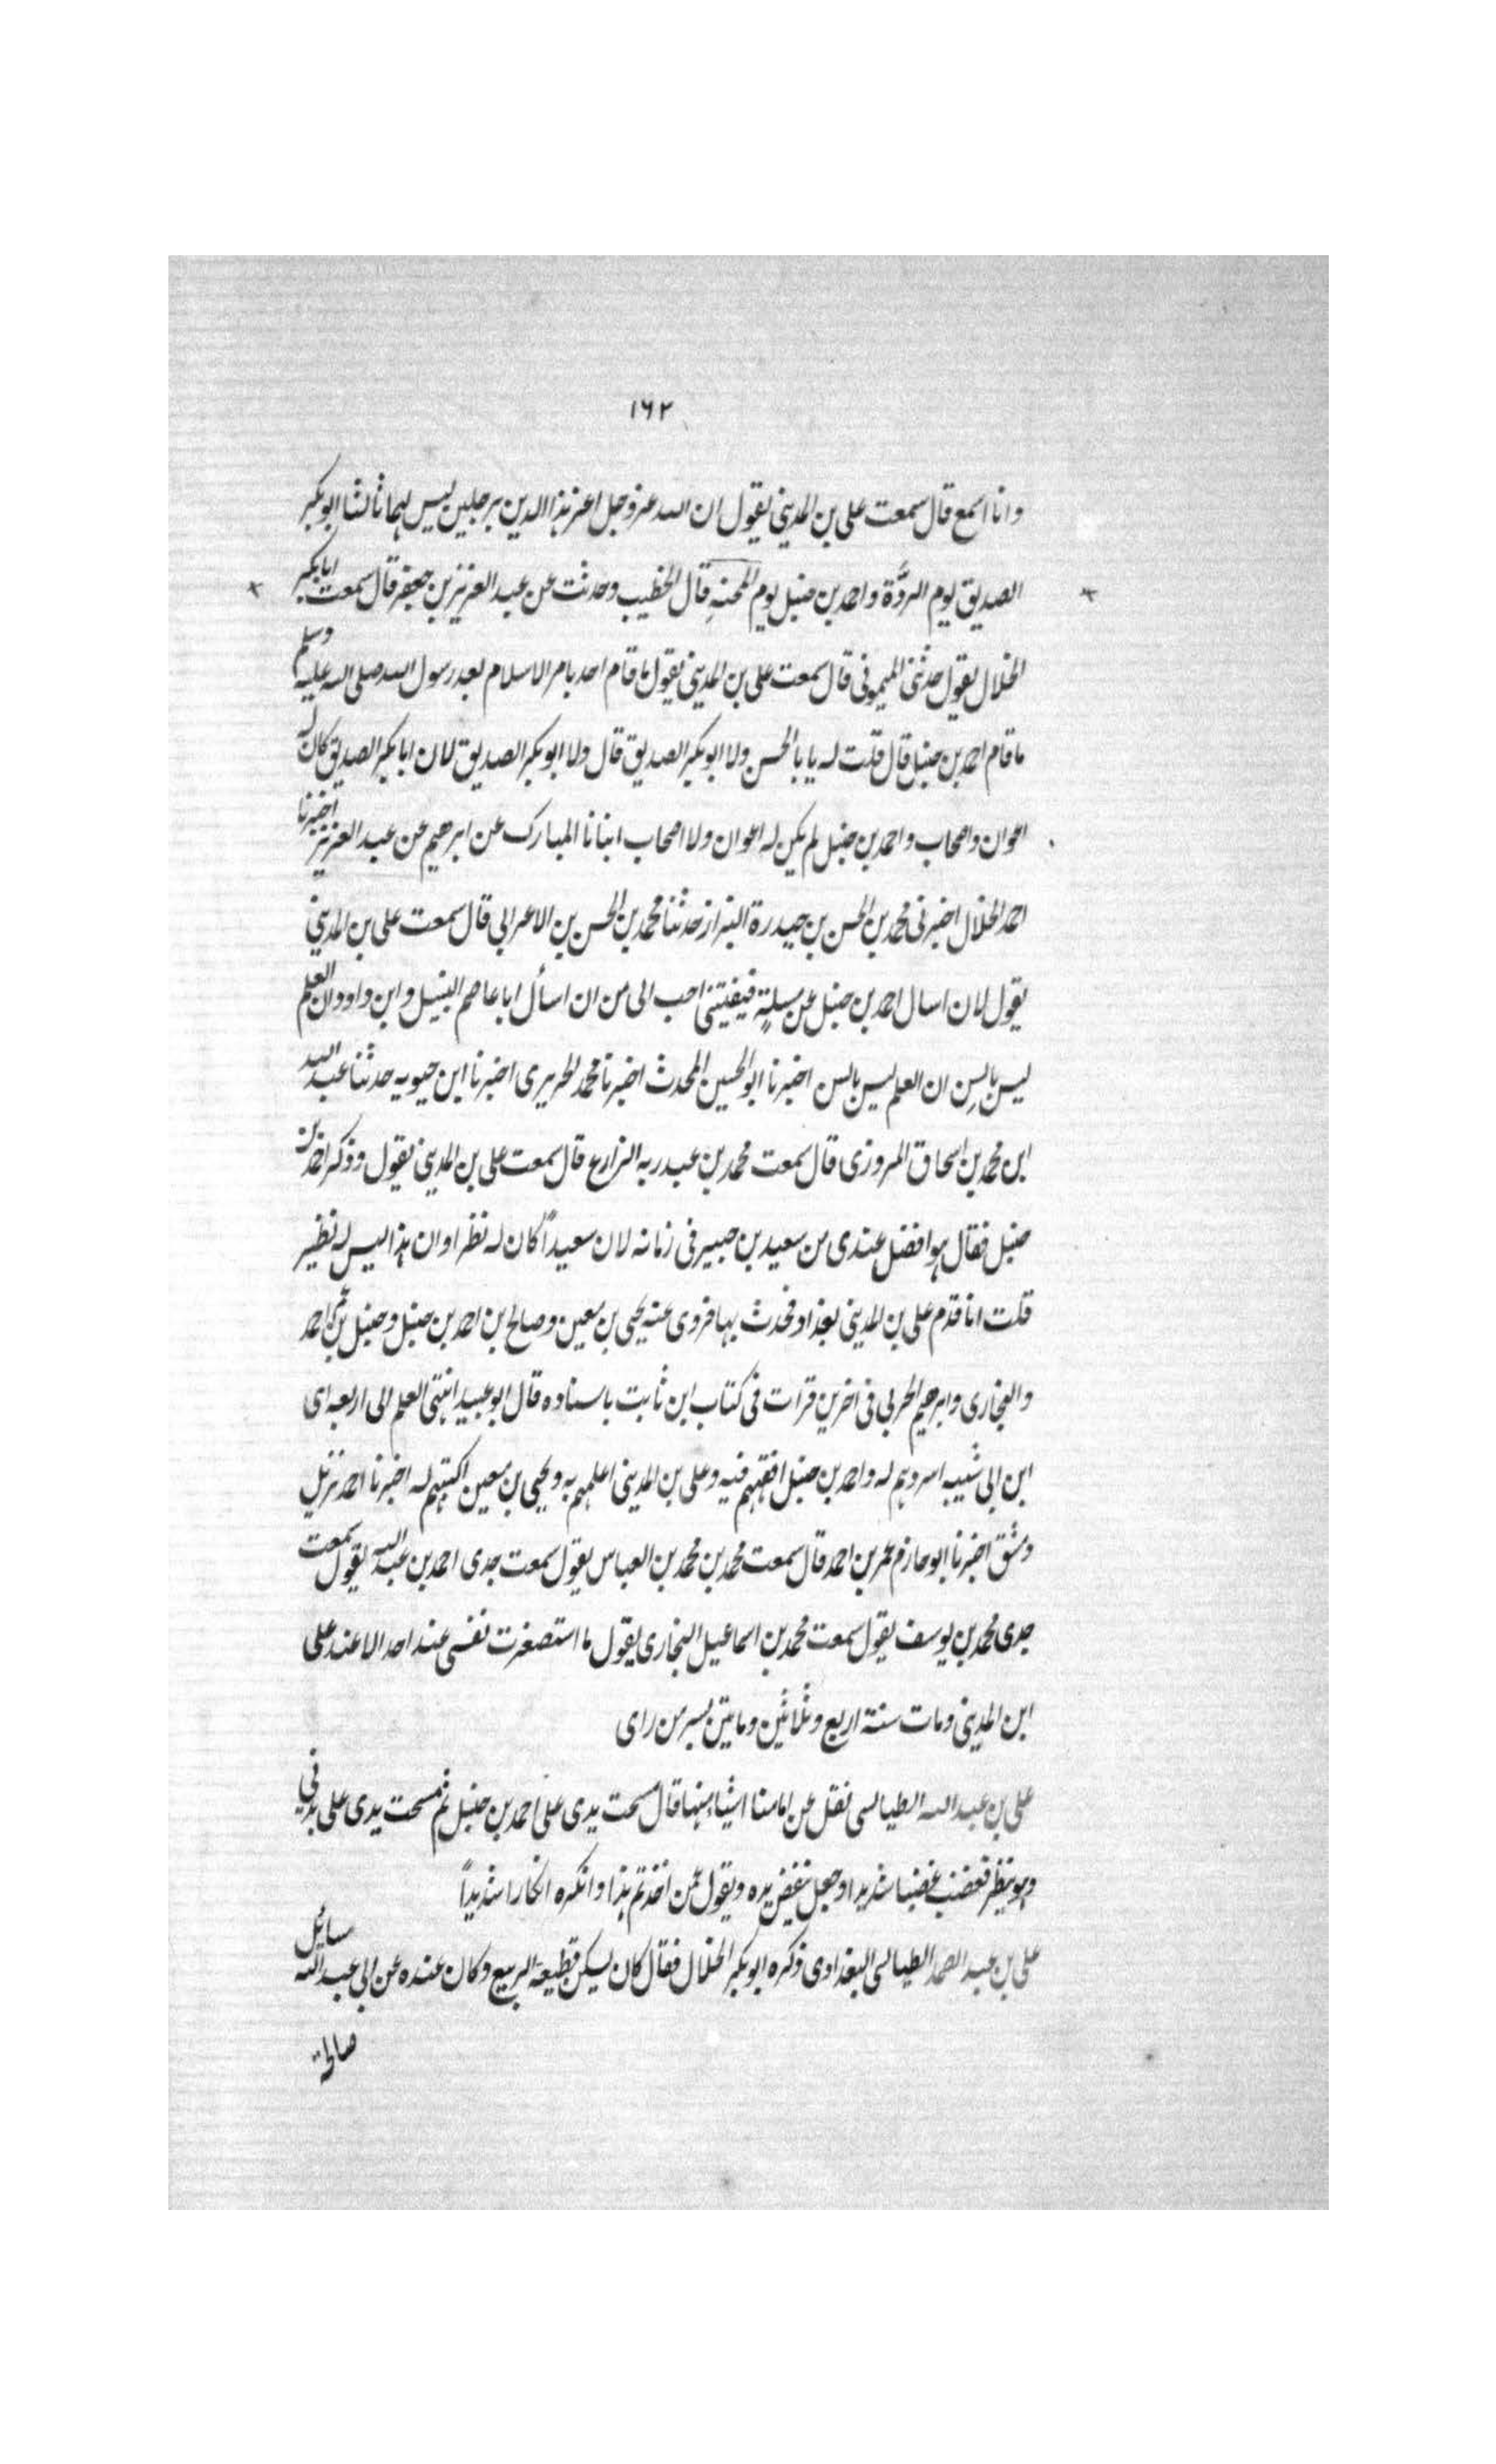 ١٦٢
وانا اسمع قال سمعت على بن المدينى يقول ان الله عزوجل اعز هذا الدين برجلين ليس لهما ثالثا ابوبكر
الصديق يوم الردَّة واحمد بن حنبل يوم المحنةِ قال الخطيب وحدثت عن عبد العزيز بن جعفر قال سمعت ابابكر
الخلال يقول حدثنى الميمونى قال سمعت على بن المدينى يقول ما قام احد بامر الاسلام بعد رسول الله صلى الله عليه وسلم
ما قام احمد بن حنبل قال قلت له يا با الحسن ولا ابوبكر الصديق قال ولا ابوبكر الصديق لان ابابكر الصديق كان له
اعوان واصحاب واحمد بن حنبل لم يكن له اعوان ولا اصحاب انبانا المبارك عن ابرهيم عن عبد العزيز اخبرنا
احمد الخلال اخبرنى محمد بن الحسن بن حيدرة البزاز حدثنا محمد بن الحسن بن الاعرابى قال سمعت على بن المدينى
يقول لان اسال احمد بن حنبل عن مسلةٍ فيفتينى احب الى من ان اسأل ابا عاصم النبيل وابن داود ان العلم
ليس بالسِن ان العلم ليس بالسن اخبرنا ابو الحسين المحدث اخبرنا محمد الحريرى اخبرنا ابن حيويه حدثنا عبد الله
ابن محمد بن اسحاق المروزى قال سمعت محمد بن عبد ربه الزارع قال سمعت على بن المدينى يقول وذكر احمد بن
حنبل فقال هو افضل عندى من سعيد بن جبير فى زمانه لان سعيداً كان له نظراو ان هذا ليس له نظير
قلت انا قدم على بن المدينى بغداد فحدث بها فروى عنه يحيى بن معين وصالح بن احمد بن حنبل وحنبل بن عم احمد
والبخارى وابرهيم الحربى فى اخرين قرات فى كتاب ابن ثابت باسناده قال ابو عبيد انتهى العلم الى اربعه اى
ابن ابى شيبه اسردهم له واحمد بن حنبل افقههم فيه وعلى بن المدينى اعلمهم به ويحيى بن معين اكتبهم له اخبرنا احمد نزيل
دمشق اخبرنا ابو حازم عمر بن احمد قال سمعت محمد بن محمد بن العباس يقول سمعت جدى احمد بن عبد الله يقول سمعت
جدى محمد بن يوسف يقول سمعت محمد بن اسماعيل البخارى يقول ما استصغرت نفسى عند احد الا عند على
ابن المدينى ومات سنة اربع وثلاثين ومايتين بسر من راى
على بن عبد الله الطيالسى نقل عن امامنا اشياء منها قال مسحت يدى على احمد بن حنبل ثم مسحت يدى على بدنى
وهو ينظر فغضب غضبا شديدا وجعل ينفض يده ويقول عمن اخذتم هذا وانكره انكارا شديداً
على بن عبد الصمد الطيالسى البغدادى ذكره ابوبكر الخلال فقال كان يسكن قطيعة الربيع وكان عنده عن ابى عبد الله مسائل
صالحة